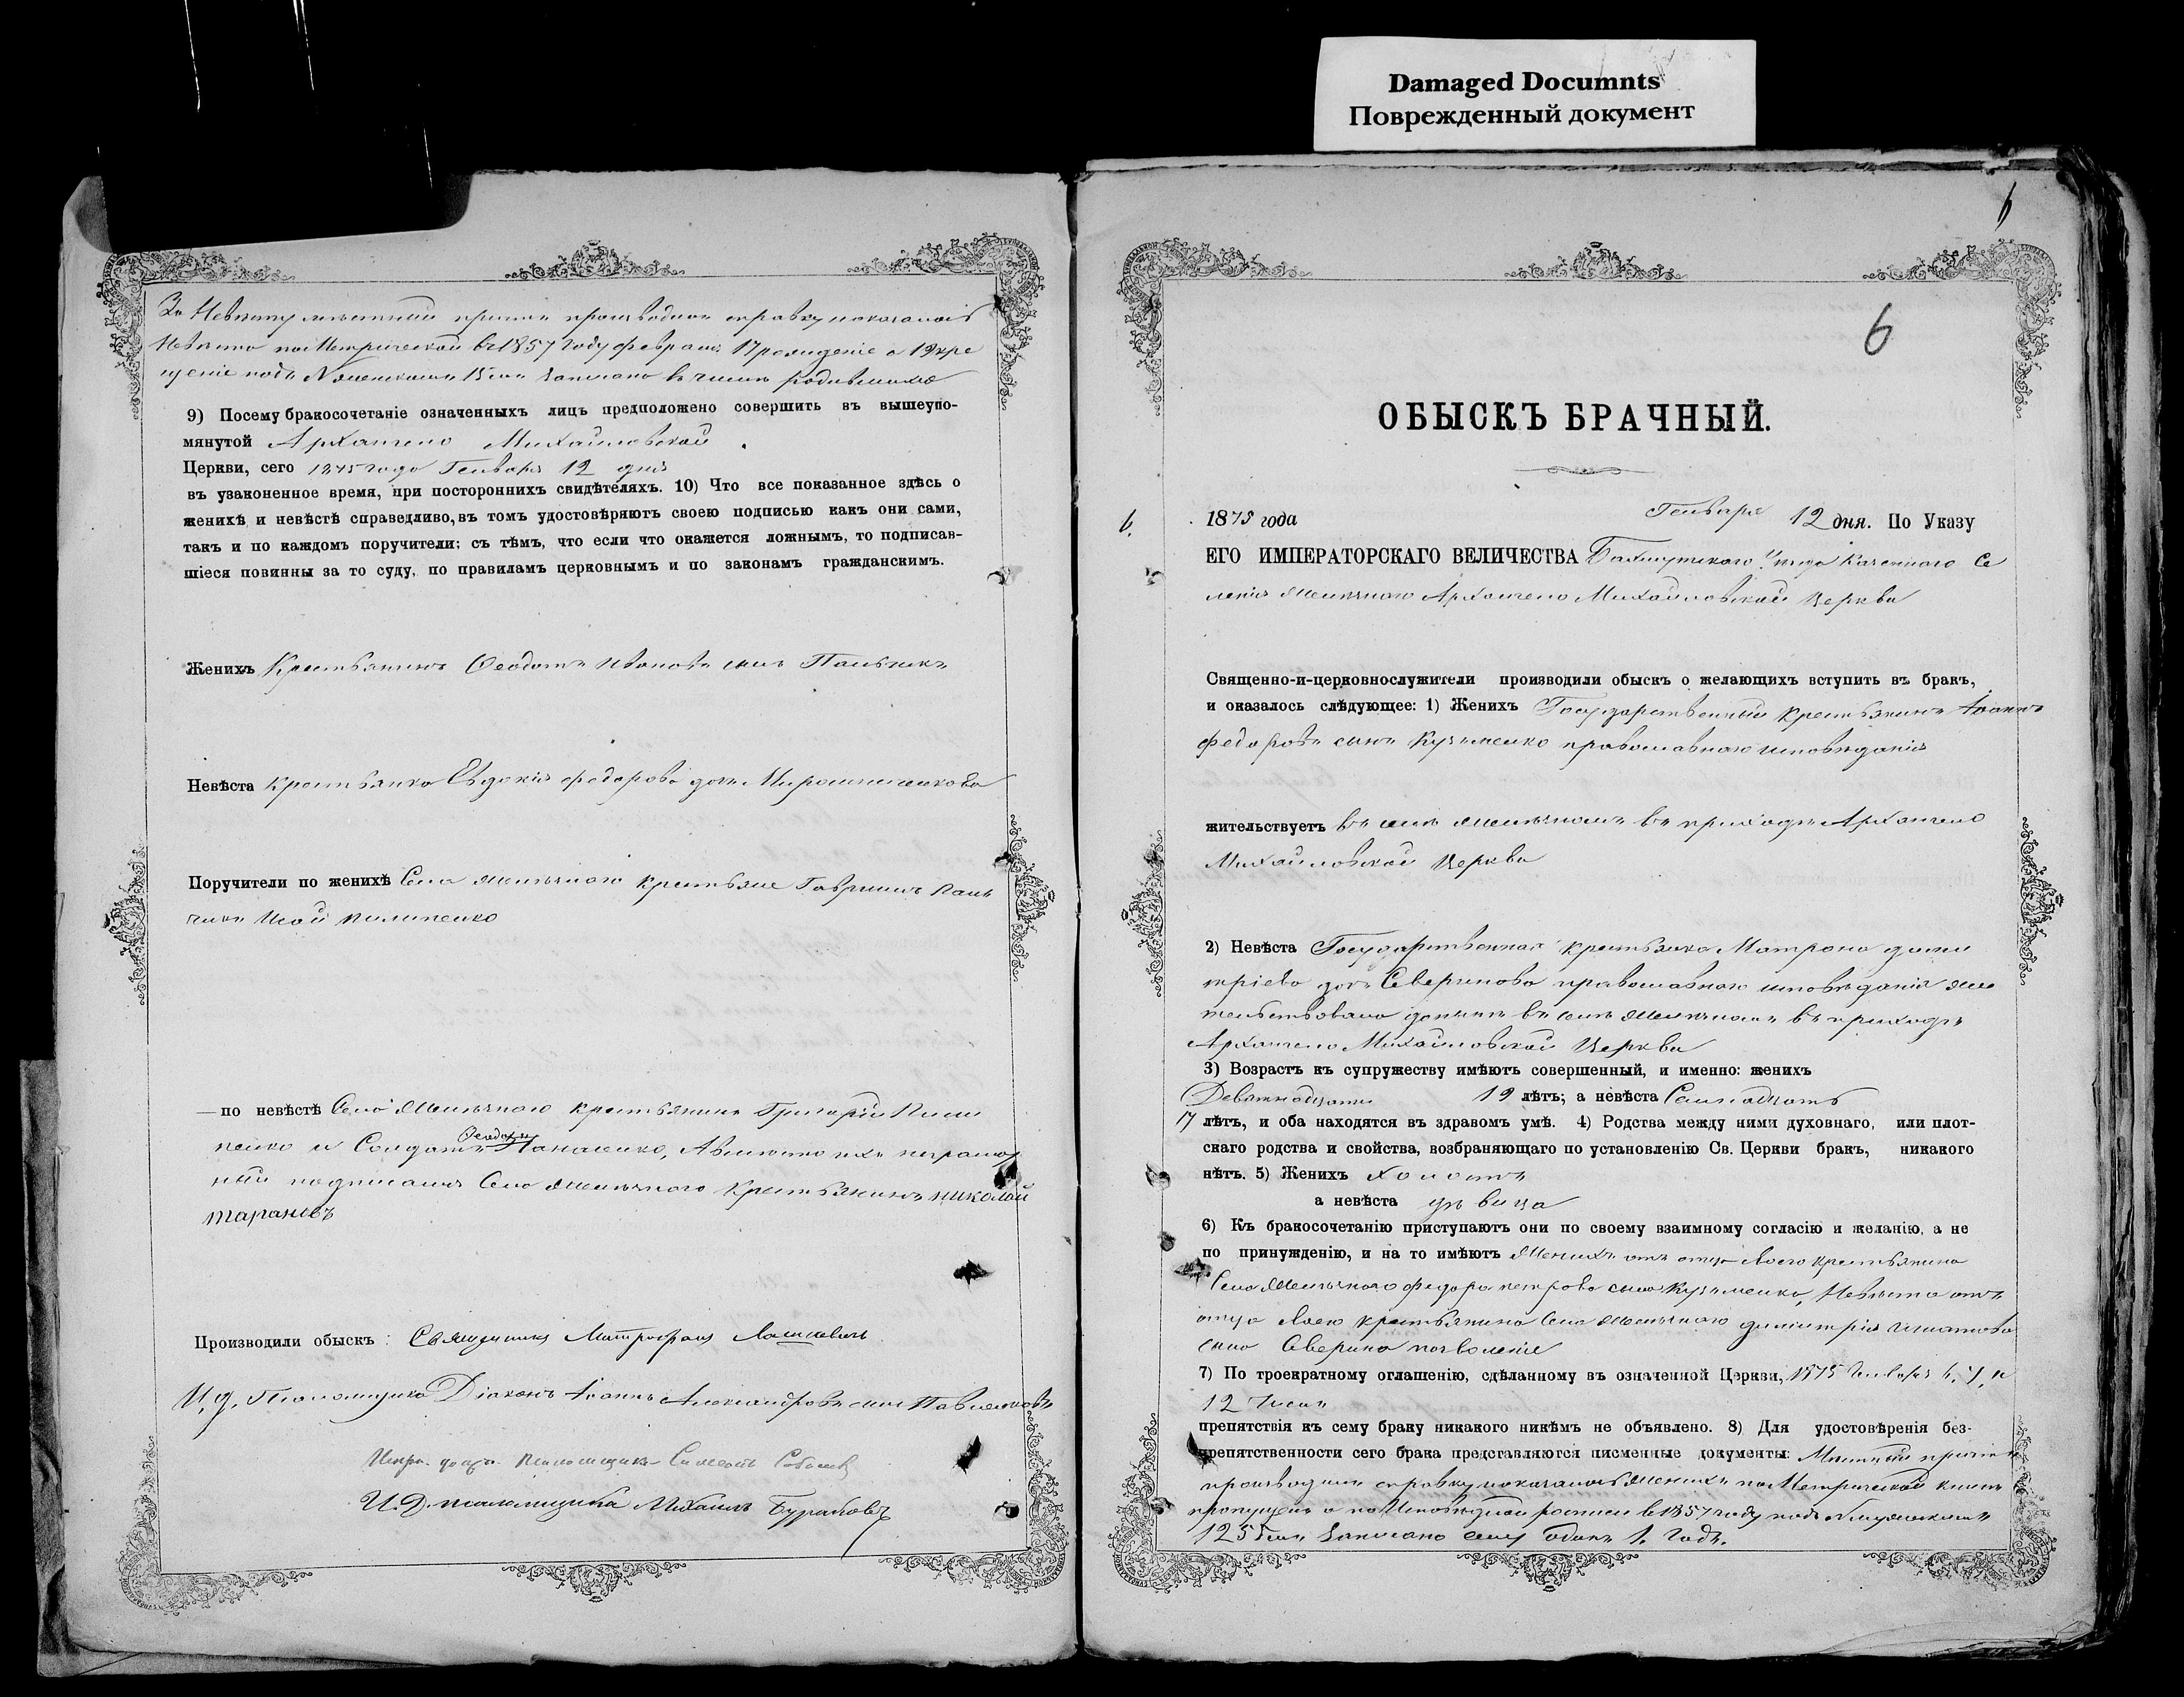 Damaged Documnts
Поврежденный документ
За Невесту местный причтъ производилъ справку показалось
Невеста по Метрической въ 1857 году Феврал. 17 рождение а 19 кре
щеніе подъ № женскимъ 15 записано въ числѣ родившихся
9) Посему бракосочетаніе означенныхъ лицъ предположено совершить въ вышеупо-
мянутой Архангело Михайловской
Церкви, сего 1875 года Генваря 12 дня
въ узаконенное время, при постороннихъ свидѣтеляхъ. 10) Что все показанное здѣсь о
женихѣ и невѣстѣ справедливо, въ томъ удостовѣряютъ своею подписью какъ они сами,
такъ и по каждомъ поручители; съ тѣмъ, что если что окажется ложнымъ, то подписав-
шіеся повинны за то суду, по правиламъ церковнымъ и по законамъ гражданскимъ.
Женихъ Крестьянинъ Феодотъ Ивановъ сынъ
Невѣста крестьянка Евдокія Федорова дочь Мирошниченкова
Поручители по женихѣ Села крестьяне Гавриилъ Паль
чикъ
— по невѣстѣ Села крестьянинъ Григорій Пили
пенко и Солдатъ Феодоръ Панасенко, А вместо ихъ неграмот
ный подписался Села крестьянинъ николай
тарановъ
Производили обыскъ: Священникъ Митрофанъ
И. д. Псаломщика Діаконъ Іоаннъ Александровъ сынъ
Испр. должн. псаломщика Симеонъ
И. Д. псаломщика Михаилъ Бураковъ
6
6
ОБЫСКЪ БРАЧНЫЙ.
6. 1875 года Генваря 12 дня. По Указу
ЕГО ИМПЕРАТОРСКАГО ВЕЛИЧЕСТВА Бахмутскаго уезда Казенного Се
ленія Архангело Михайловской Церкви
Священно-и-церковнослужители производили обыскъ о желающихъ вступить въ бракъ,
и оказалось слѣдующее: 1) Женихъ Государственный крестьянинъ Іоаннъ
Федоровъ сынъ Кузьменко православного исповеданія
жительствуетъ въ селе въ приходе Архангело
Михайловской Церкви
2) Невѣста Государственная крестьянка Матрона дими
тріева дочь Северинова православного исповеданія жи
тельствовала доныне въ селе въ приходе
Архангело Михайловской Церкви
3) Возрастъ къ супружеству имѣютъ совершенный, и именно: женихъ
Девятнадцать 19 лѣтъ; а невѣста Семнадцать
17 лѣтъ, и оба находятся въ здравомъ умѣ. 4) Родства между ними духовнаго, или плот-
скаго родства и свойства, возбраняющаго по установленію Св. Церкви бракъ, никакого
нѣтъ. 5) Женихъ холостъ
а невѣста дѣвица
6) Къ бракосочетанію приступаютъ они по своему взаимному согласію и желанію, а не
по принужденію, и на то имѣютъ Женихъ отъ отца своего крестьянина
Села Федора петрова сына Кузьменко, Невеста отъ
отца своего крестьянина Села димитрія
сына Северина позволеніе
7) По троекратному оглашенію, сдѣланному въ означенной Церкви, 1875 Генваря 6, 7, и
12 числ
препятствія къ сему браку никакого никѣмъ не объявлено. 8) Для удостовѣренія без-
препятственности сего брака представляются писменные документы: Местный причтъ
производилъ справку показалось Женихъ по Метрической книге
пропущенъ а по Исповедной росписи въ 1857 году подъ № мужескимъ
125 записано ему одинъ 1. годъ.